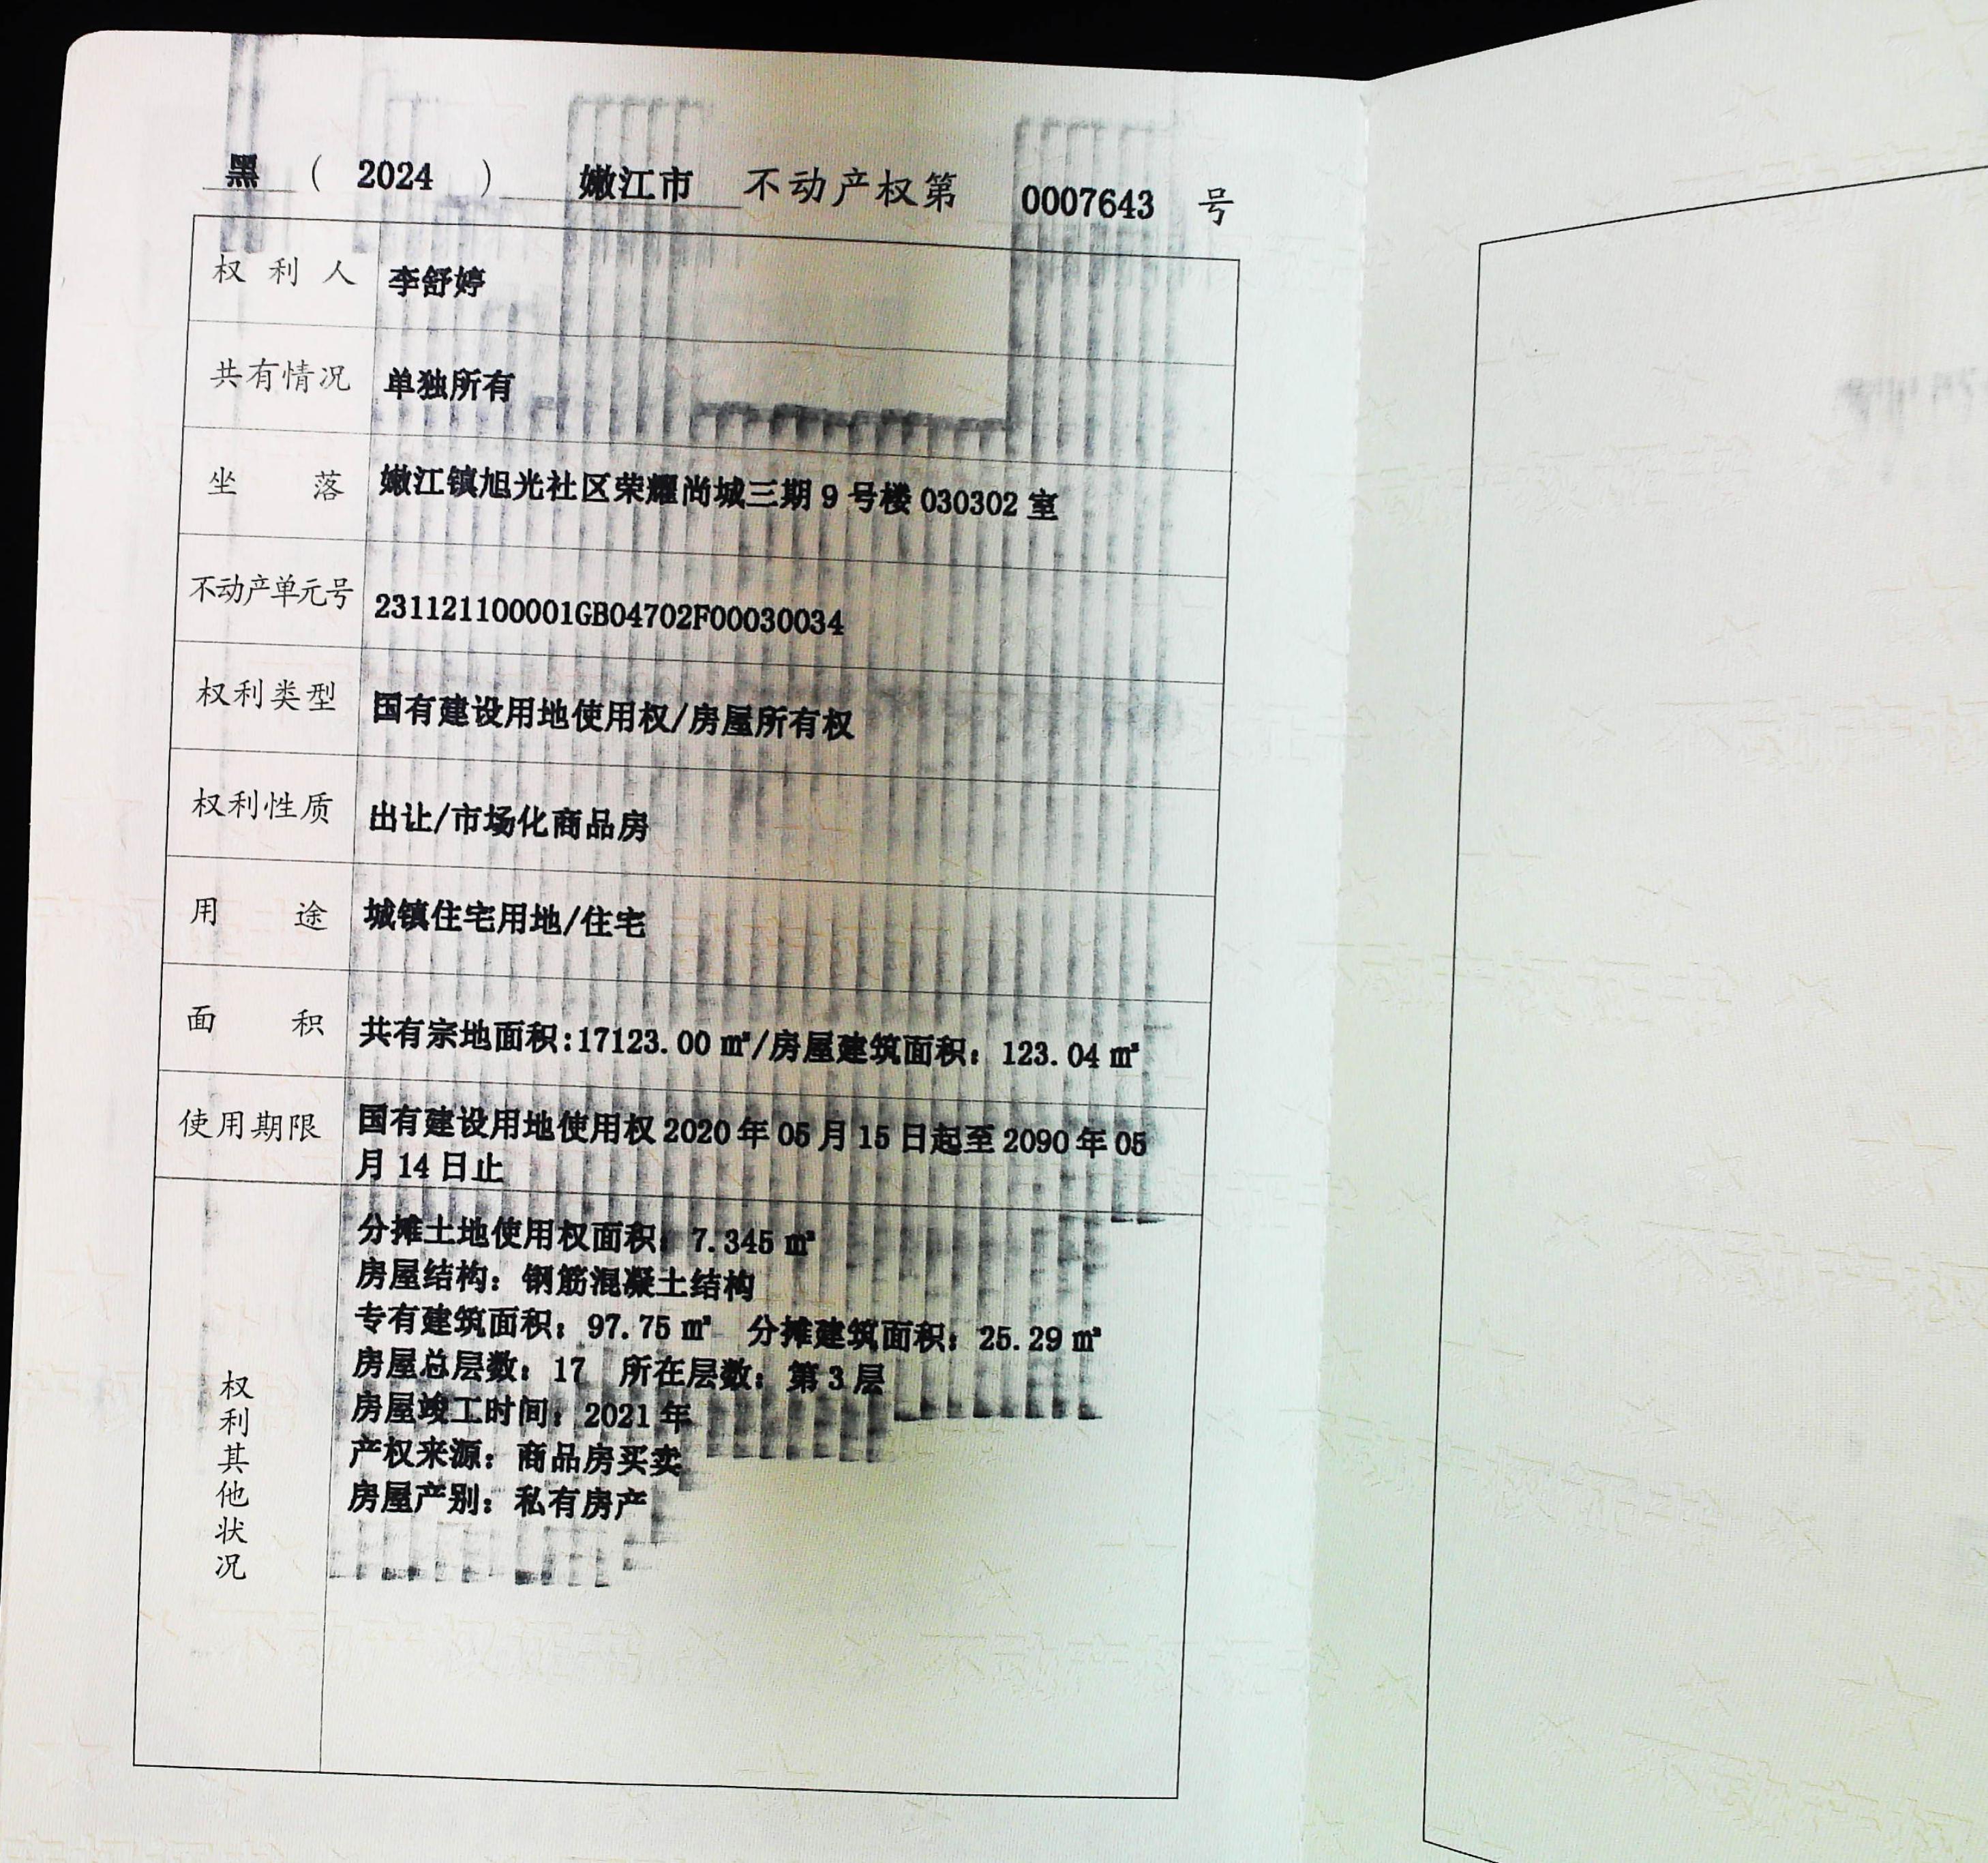 黑 ( 2024 ) 嫩江市 不动产权第 0007643 号
权利人 李舒婷
共有情况 单独所有
坐落 嫩江镇旭光社区荣耀尚城三期 9 号楼 030302 室
不动产单元号 231121100001GB04702F00030034
权利类型 国有建设用地使用权/房屋所有权
权利性质 出让/市场化商品房
用途 城镇住宅用地/住宅
面积 共有宗地面积:17123.00 ㎡/房屋建筑面积：123.04 ㎡
使用期限 国有建设用地使用权 2020 年 05 月 15 日起至 2090 年 05
月 14 日止
权利其他状况
分摊土地使用权面积：7.345 ㎡
房屋结构：钢筋混凝土结构
专有建筑面积：97.75 ㎡ 分摊建筑面积：25.29 ㎡
房屋总层数：17 所在层数：第 3 层
房屋竣工时间：2021 年
产权来源：商品房买卖
房屋产别：私有房产